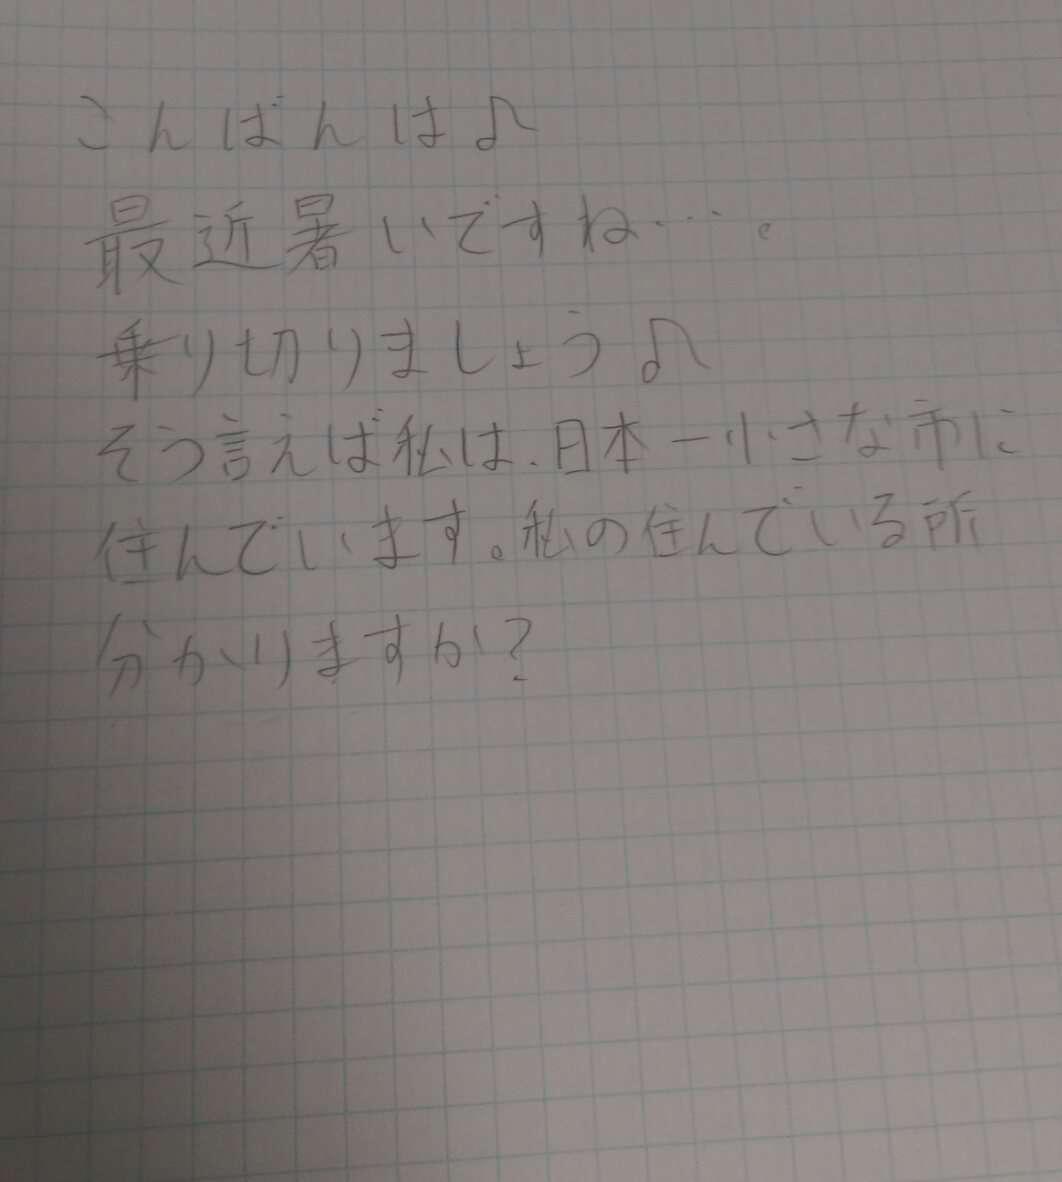 こんばんは♪
最近暑いですね…。
乗り切りましょう♪
そう言えば私は、日本一小さな市に
住んでいます。私の住んでいる所
分かりますか?